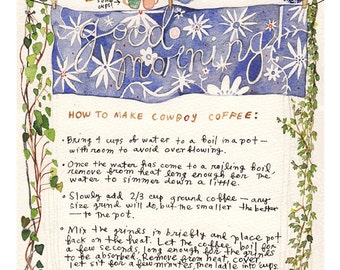 good
morning!
HOW TO MAKE COWBOY COFFEE:
• Bring 4 cups of water to a boil in a pot —
with room to avoid overflowing.
• Once the water has come to a roiling boil,
remove from heat long enough for the
water to simmer down a little.
• Slowly add 2/3 cup ground coffee — any
size grind will do, but the smaller the better
— to the pot.
• Mix the grinds in briefly and place pot
back on the heat. Let the coffee boil for
a few seconds, long enough for the grinds
to be absorbed. Remove from heat, cover,
let sit for a few minutes, then ladle into cups.